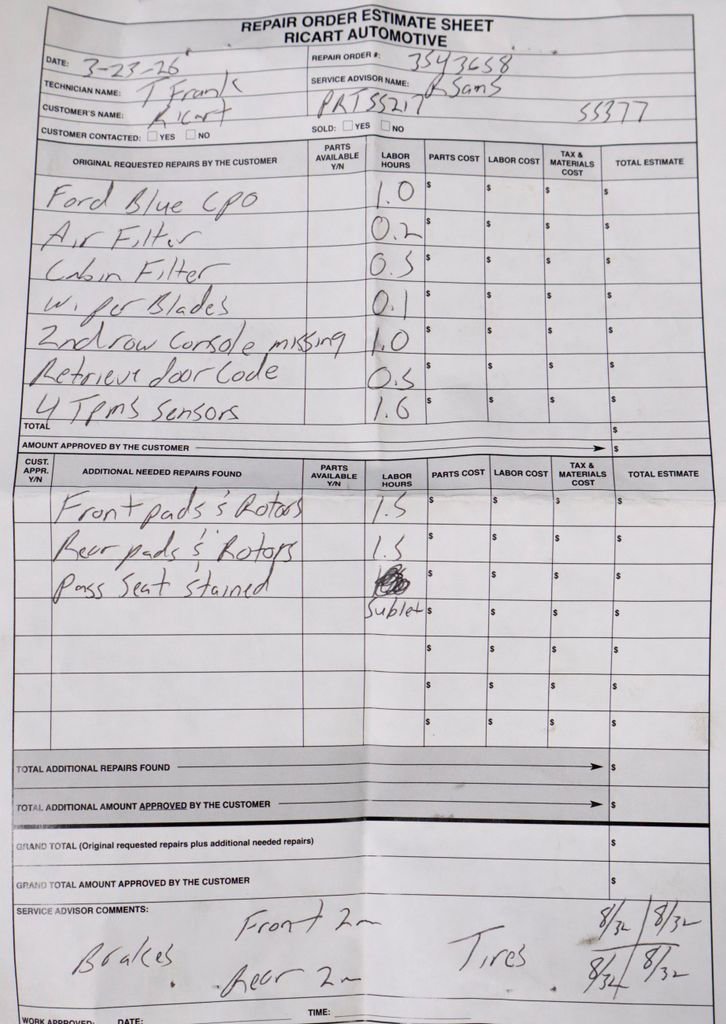 REPAIR ORDER ESTIMATE SHEET
RICART AUTOMOTIVE
DATE: 3-23-26 REPAIR ORDER #: 3543658
TECHNICIAN NAME: T Frank SERVICE ADVISOR NAME: R Sams
CUSTOMER'S NAME: Ricart PRT55217 55377
CUSTOMER CONTACTED: YES NO SOLD: YES NO
ORIGINAL REQUESTED REPAIRS BY THE CUSTOMER PARTS AVAILABLE Y/N LABOR HOURS PARTS COST LABOR COST TAX & MATERIALS COST TOTAL ESTIMATE
Ford Blue CPO 1.0 $ $ $ $
Air Filter 0.2 $ $ $ $
Cabin Filter 0.5 $ $ $ $
Wiper Blades 0.1 $ $ $ $
2nd row Console missing 1.0 $ $ $ $
Retrieve door Code 0.5 $ $ $ $
4 Tpms Sensors 1.6 $ $ $ $
TOTAL $
AMOUNT APPROVED BY THE CUSTOMER $
CUST. APPR. Y/N ADDITIONAL NEEDED REPAIRS FOUND PARTS AVAILABLE Y/N LABOR HOURS PARTS COST LABOR COST TAX & MATERIALS COST TOTAL ESTIMATE
Front pads & Rotors 1.5 $ $ $ $
Rear pads & Rotors 1.5 $ $ $ $
Pass Seat stained $ $ $ $
Sublet $ $ $ $
$ $ $ $
$ $ $ $
$ $ $ $
TOTAL ADDITIONAL REPAIRS FOUND $
TOTAL ADDITIONAL AMOUNT APPROVED BY THE CUSTOMER $
GRAND TOTAL (Original requested repairs plus additional needed repairs) $
GRAND TOTAL AMOUNT APPROVED BY THE CUSTOMER $
SERVICE ADVISOR COMMENTS:
Front 2m 8/32 8/32
Brakes Tires
Rear 2m 8/32 8/32
WORK APPROVED: DATE: TIME: